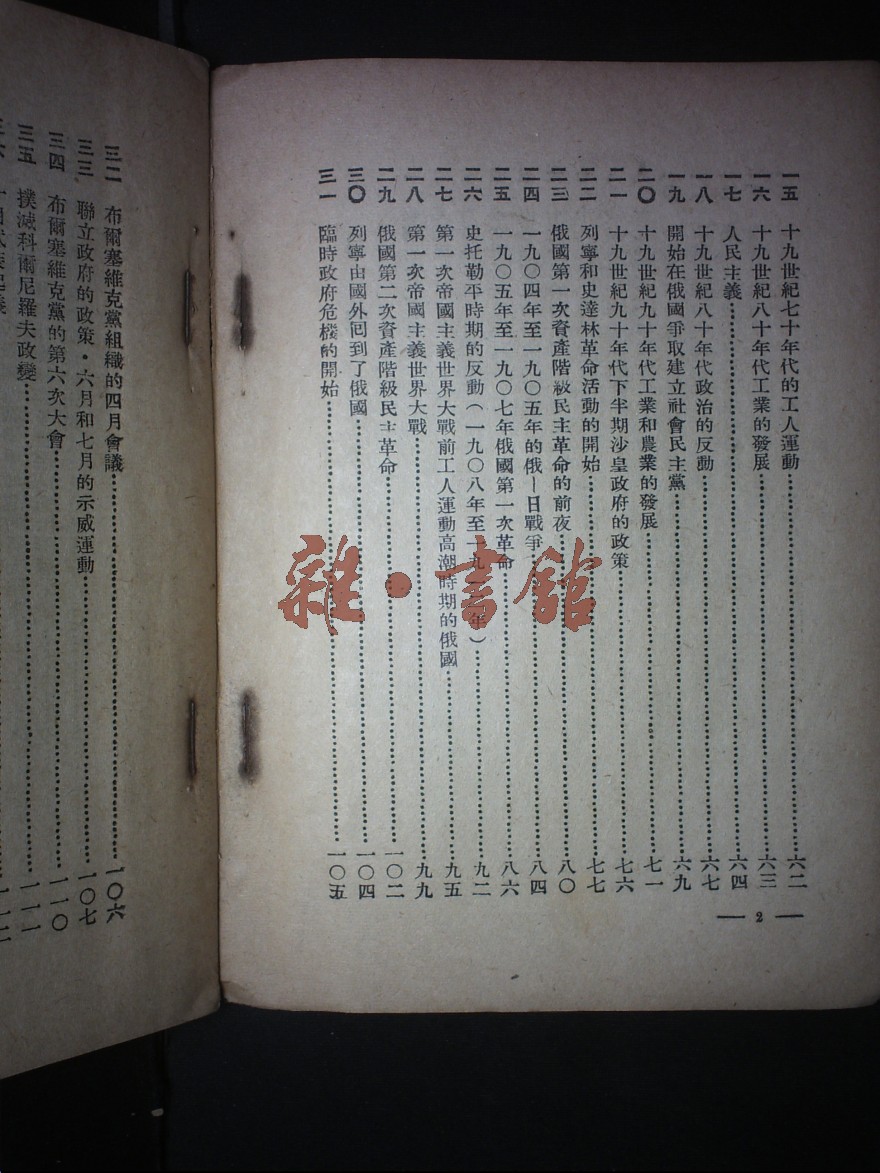 一五 十九世紀七十年代的工人運動……六二
一六 十九世紀八十年代工業的發展……六三
一七 人民主義……六四
一八 十九世紀八十年代政治的反動……六七
一九 開始在俄國爭取建立社會民主黨……六九
二〇 十九世紀九十年代工業和農業的發展……七一
二一 十九世紀九十年代下半期沙皇政府的政策……七六
二二 列寧和史達林革命活動的開始……七七
二三 俄國第一次資產階級民主革命的前夜……八〇
二四 一九〇四年至一九〇五年的俄—日戰爭……八四
二五 一九〇五年至一九〇七年俄國第一次革命……八六
二六 史托勒平時期的反動(一九〇八年至一九 年)……九二
二七 第一次帝國主義世界大戰前工人運動高潮時期的俄國……九五
二八 第一次帝國主義世界大戰……九九
二九 俄國第二次資產階級民主革命……一〇二
三〇 列寧由國外回到了俄國……一〇四
三一 臨時政府危機的開始……一〇五
— 2 —
三二 布爾塞維克黨組織的四月會議……一〇六
三三 聯立政府的政策・六月和七月的示威運動……一〇七
三四 布爾塞維克黨的第六次大會……一一〇
三五 撲滅科爾尼羅夫政變……一一一
雜・書館